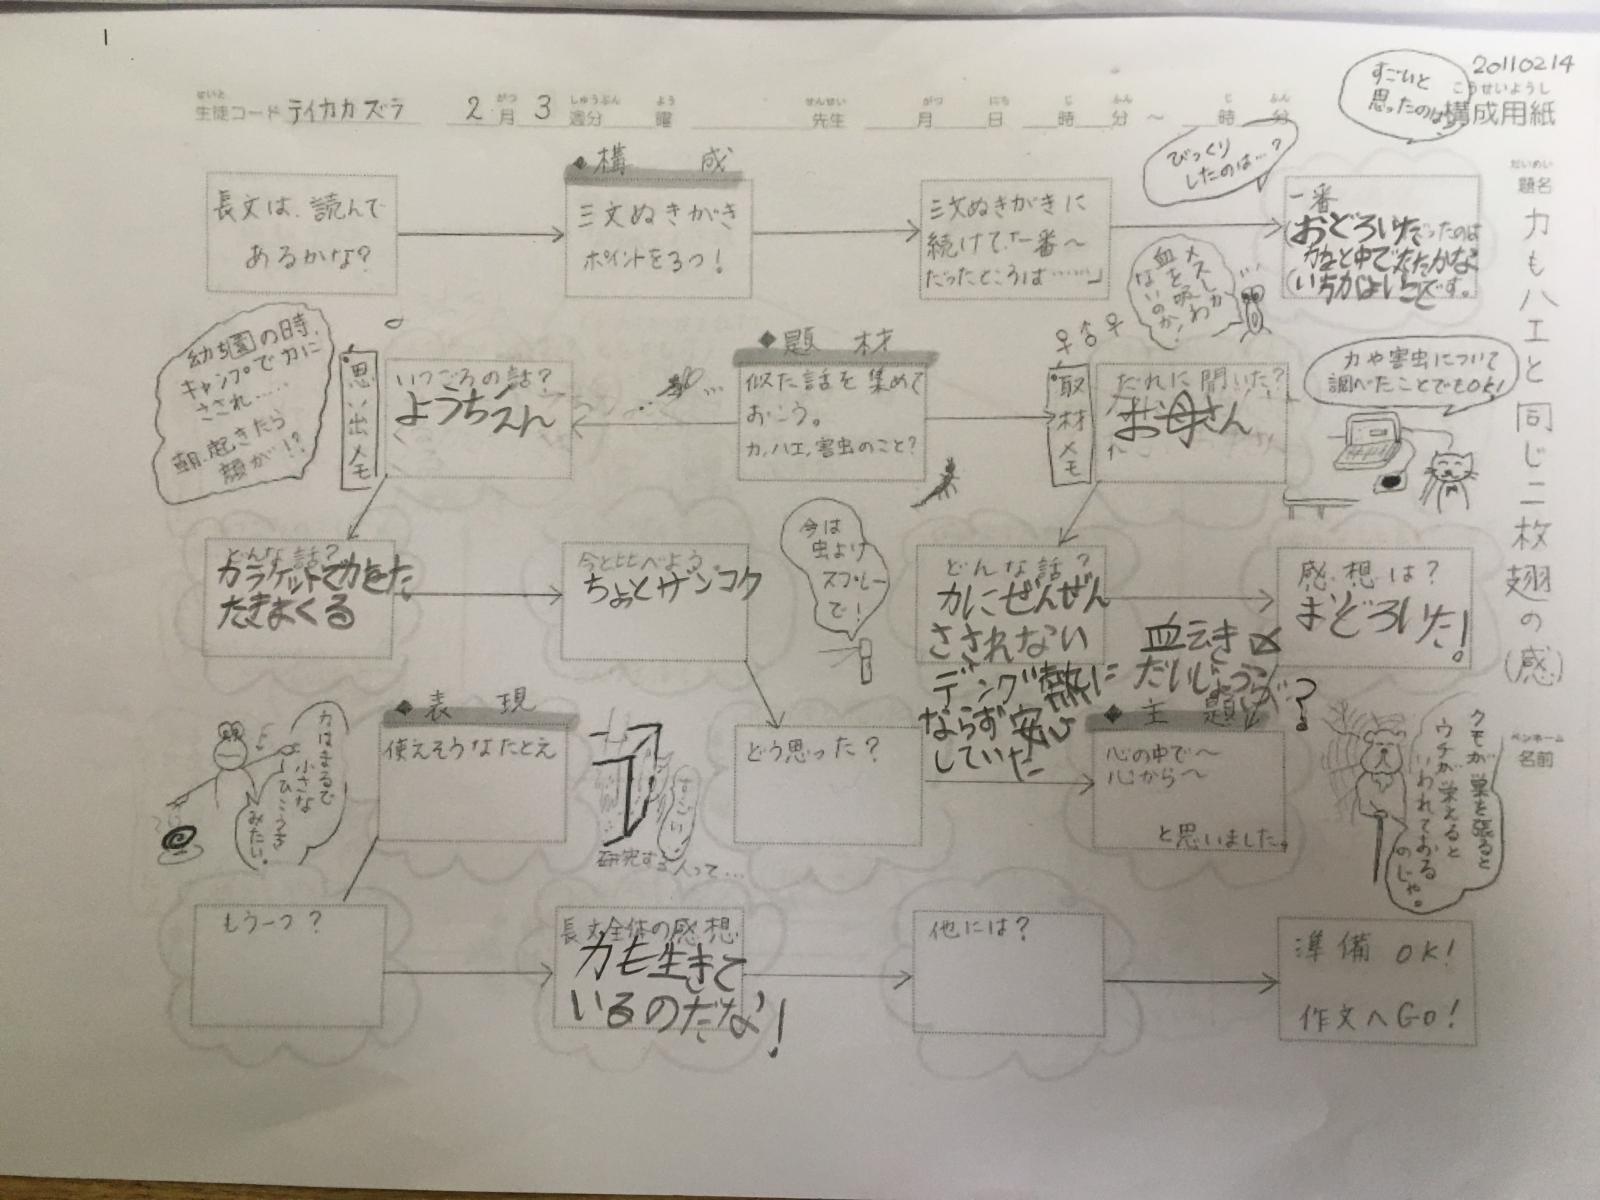 20110214
こうせいようし
構成用紙
せいと
生徒コード テイカカズラ 2月 3週分 曜 先生 月 日 時 分 ～ 時 分
がつ しゅうぶん よう せんせい がつ にち じ ふん じ ふん
だいめい
題名
カもハエと同じ二枚翅の(感)
ペンネーム
名前
すごいと
思ったのは
びっくり
したのは…?
長文は、読んで
あるかな?
◆構 成
三文ぬきがき
ポイントを3つ!
三文ぬきがきに
続けて、「一番～
だったところは……」
一番
おどろいた
◆題 材
似た話を集めて
おこう。
カ,ハエ,害虫のこと?
思い出メモ
いつごろの話?
ようちえん
幼ち園の時、
キャンプでカに
さされ……
朝、起きたら
顔が!?
♀ ♂ ♀
取材メモ
だれに聞いた?
お母さん
メスしか
血を吸わ
ないのか!
カや害虫について
調べたことでもOK!
どんな話?
カラケットでカをた
たきまくる
今と比べよう。
ちょっとザンコク
今は
虫よけ
スプレー
で!
どんな話?
カにぜんぜん
さされない
デング熱に
ならず安心
していた
感想は?
おどろいた!
だいじょうぶ
?
◆表 現
使えそうなたとえ
カはまるで
小さな
ひこうき
みたい。
すごい!
研究する人って…
どう思った?
◆主 題
心の中で～
心から～
と思いました。
クモが巣を張ると
ウチが栄えると
いわれておる
のじゃ。
もう一つ?
長文全体の感想
カも生きて
いるのだな!
他には?
準備 OK!
作文へGO!